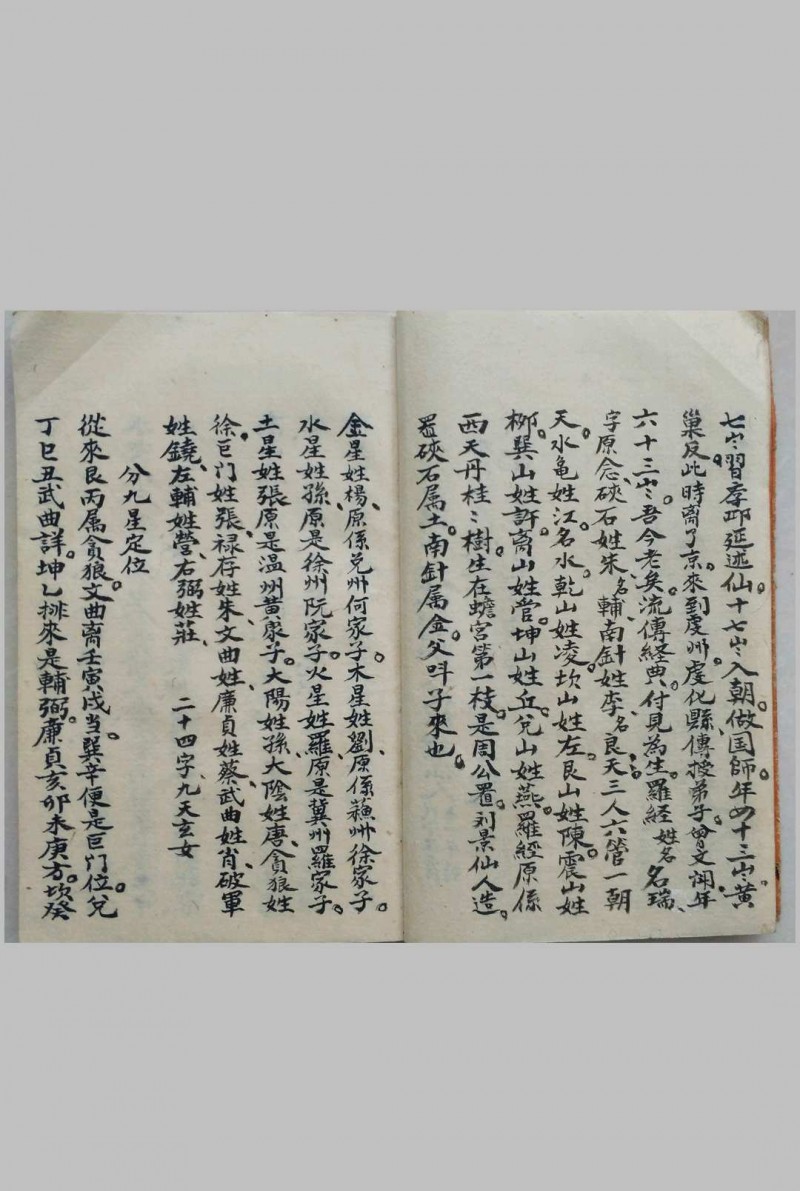 七岁習孝邛延述仙。十七岁入朝。做国師。年四十三岁。黄
巢反。此時离了京。來到虔州。虔化縣、傳授弟子。曾文辿。年
六十三岁。吾今老矣。流傳経典。付見為生。羅経姓名名瑞、
字原念。硤石姓朱、名輔、南針姓李、名良。天三人六管一朝
天水亀姓江。名水。乾山姓凌。坎山姓左。艮山姓陳。震山姓
柳。巽山姓許。离山姓管。坤山姓丘。兌山姓燕。羅経原係
西天丹桂〻樹。生在蟾宮第一枝。是周公置。刘景仙人造。
置硤石属土。南針属金。父呌子來也。
金星姓楊、原係兌州何家子。木星姓劉、原係蘓州徐家子。
水星姓孫、原是徐州阮家子。火星姓羅、原是冀州羅家子。
土星姓張、原是温州黄家子。大陽姓孫、大陰姓唐、貪狼姓
徐、巨门姓張、禄存姓朱、文曲姓、廉貞姓蔡、武曲姓肖、破軍
姓鐃、左輔姓營、右弼姓莊、 二十四字、九天玄女
分九星定位
從來艮丙属貪狼。文曲离壬寅戌当。巽辛便是巨门位。兌
丁巳丑武曲詳。坤乙排來是輔弼。廉貞亥卯未庚方。坎癸